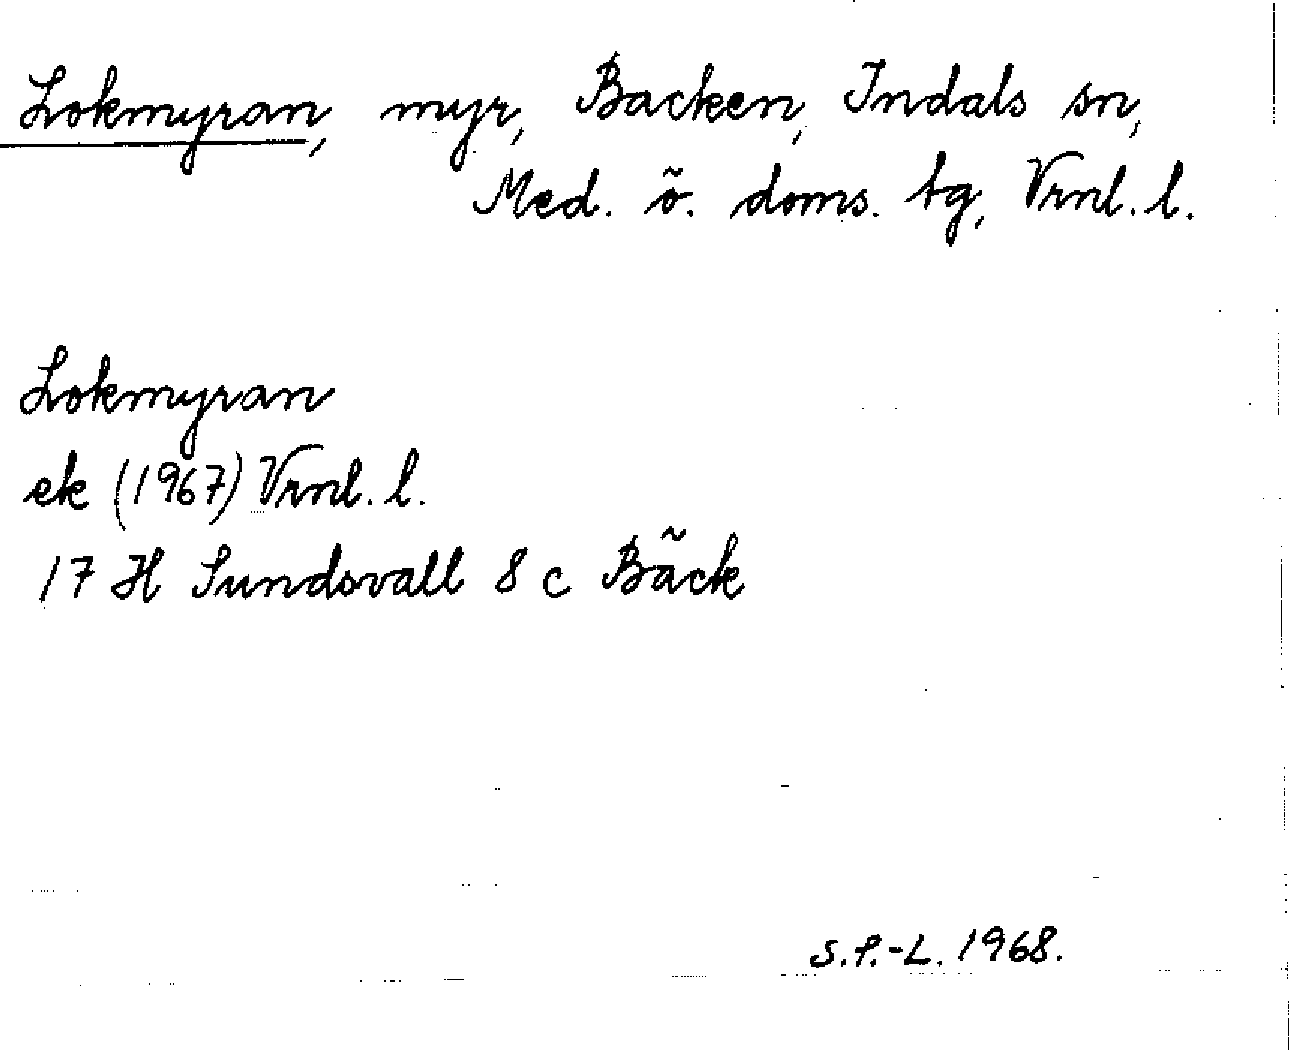 Lokmyran, myr, Backen, Indals sn,
Med. ö. doms. tg, Vrnl. l.
Lokmyran
ek (1967) Vrnl. l.
17 H Sundsvall 8 c Bäck
S.P.-L. 1968.